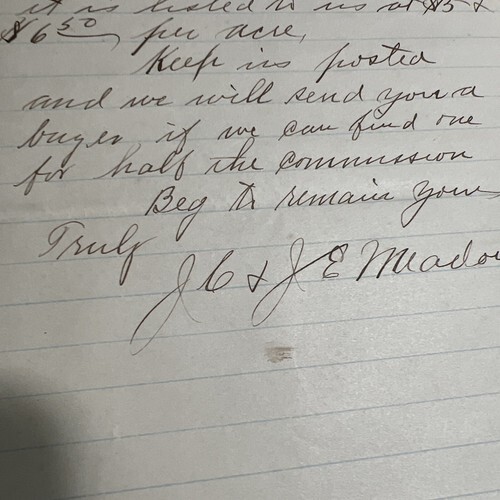 it is listed to us at $5 &
$6 50 per acre,
Keep us posted
and we will send you a
buyer if we can find one
for half the commission
Beg to remain your
Truly
J C & J E Meadow